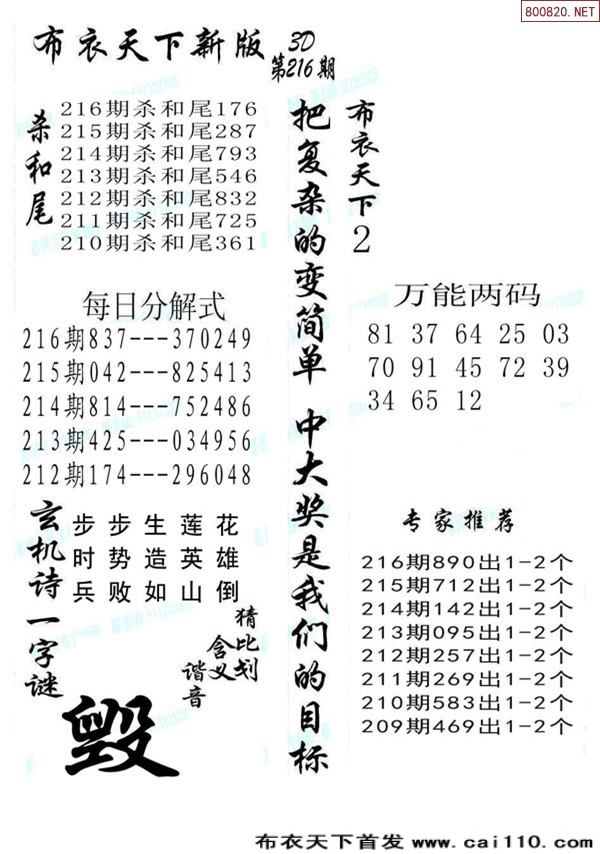 800820.NET
布衣天下新版
3D
第216期
杀和尾
216期杀和尾176
215期杀和尾287
214期杀和尾793
213期杀和尾546
212期杀和尾832
211期杀和尾725
210期杀和尾361
每日分解式
216期837---370249
215期042---825413
214期814---752486
213期425---034956
212期174---296048
玄机诗
步步生莲花
时势造英雄
兵败如山倒
一字谜
猜比划
含义
谐音
毁
把复杂的变简单 中大奖是我们的目标
布衣天下2
万能两码
81 37 64 25 03
70 91 45 72 39
34 65 12
专家推荐
216期890出1-2个
215期712出1-2个
214期142出1-2个
213期095出1-2个
212期257出1-2个
211期269出1-2个
210期583出1-2个
209期469出1-2个
布衣天下首发 www.cai110.com